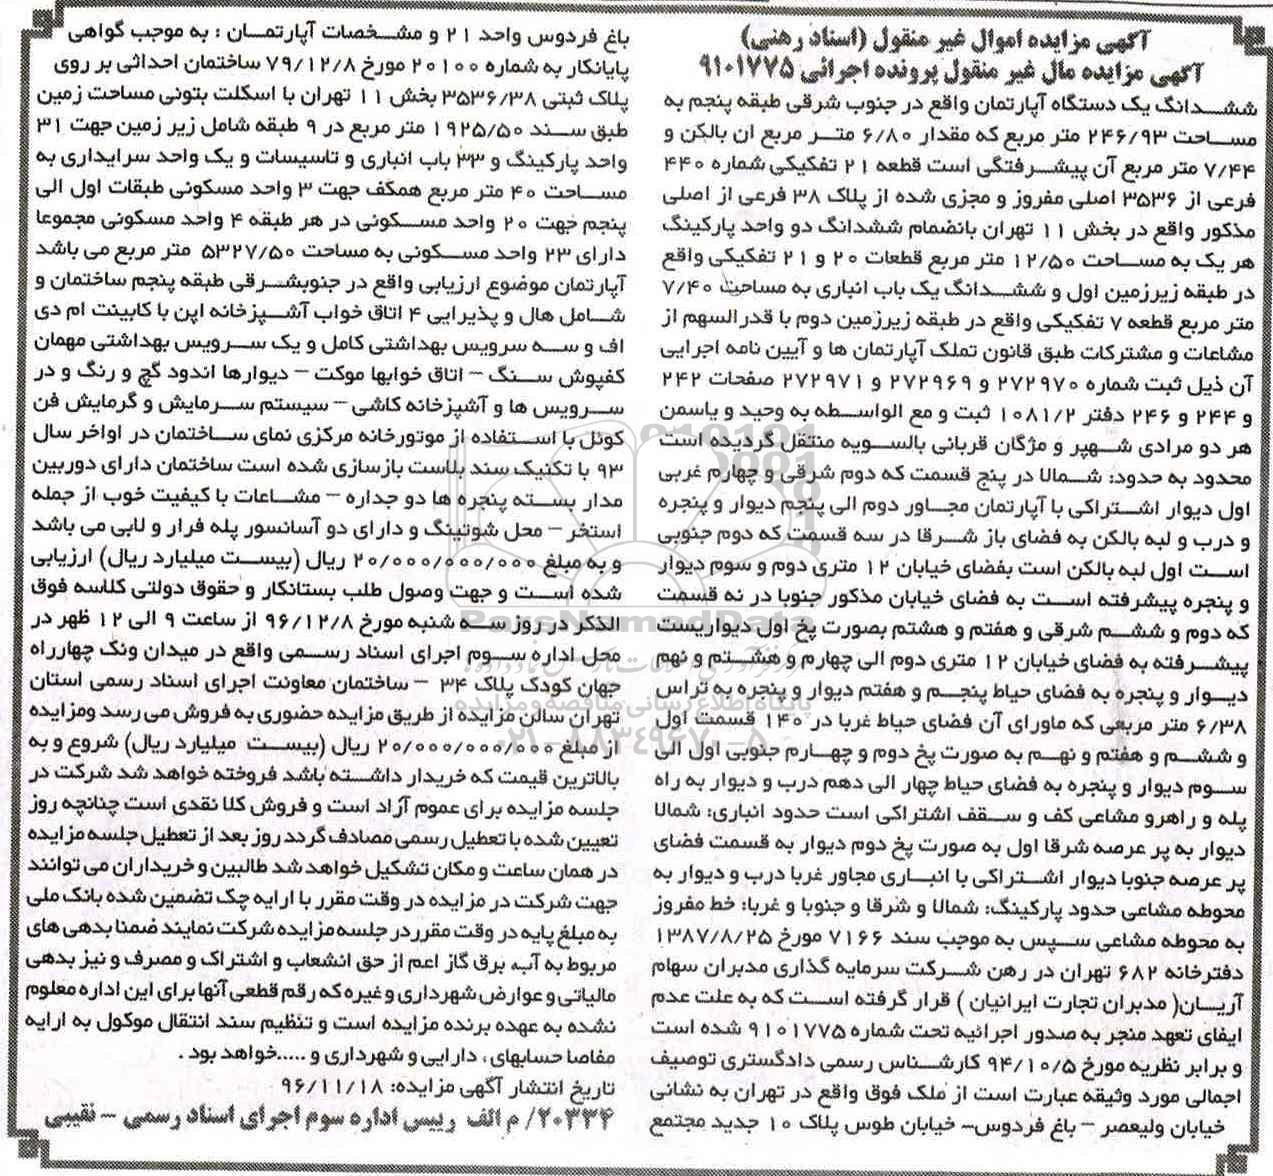 آگهی مزایده اموال غیر منقول (اسناد رهنی)
آگهی مزایده مال غیر منقول پرونده اجرائی ۹۱۰۱۷۷۵
ششدانگ یک دستگاه آپارتمان واقع در جنوب شرقی طبقه پنجم به
مساحت ۲۴۶/۹۳ متر مربع که مقدار ۶/۸۰ متر مربع ان بالکن و
۷/۴۴ متر مربع آن پیشرفتگی است قطعه ۲۱ تفکیکی شماره ۴۴۰
فرعی از ۳۵۳۶ اصلی مفروز و مجزی شده از پلاک ۳۸ فرعی از اصلی
مذکور واقع در بخش ۱۱ تهران بانضمام ششدانگ دو واحد پارکینگ
هر یک به مساحت ۱۲/۵۰ متر مربع قطعات ۲۰ و ۲۱ تفکیکی واقع
در طبقه زیرزمین اول و ششدانگ یک باب انباری به مساحت ۷/۴۰
متر مربع قطعه ۷ تفکیکی واقع در طبقه زیرزمین دوم با قدرالسهم از
مشاعات و مشترکات طبق قانون تملک آپارتمان ها و آیین نامه اجرایی
آن ذیل ثبت شماره ۲۷۲۹۷۰ و ۲۷۲۹۶۹ و ۲۷۲۹۷۱ صفحات ۲۴۲
و ۲۴۴ و ۲۴۶ دفتر ۱۰۸۱/۲ ثبت و مع الواسطه به وحید و یاسمن
هر دو مرادی شهپر و مژگان قربانی بالسویه منتقل گردیده است
محدود به حدود: شمالا در پنج قسمت که دوم شرقی و چهارم غربی
اول دیوار اشتراکی با آپارتمان مجاور دوم الی پنجم دیوار و پنجره
و درب و لبه بالکن به فضای باز شرقا در سه قسمت که دوم جنوبی
است اول لبه بالکن است بفضای خیابان ۱۲ متری دوم و سوم دیوار
و پنجره پیشرفته است به فضای خیابان مذکور جنوبا در نه قسمت
که دوم و ششم شرقی و هفتم و هشتم بصورت پخ اول دیواریست
پیشرفته به فضای خیابان ۱۲ متری دوم الی چهارم و هشتم و نهم
دیوار و پنجره به فضای حیاط پنجم و هفتم دیوار و پنجره به تراس
۶/۳۸ متر مربعی که ماورای آن فضای حیاط غربا در ۱۴۰ قسمت اول
و ششم و هفتم و نهم به صورت پخ دوم و چهارم جنوبی اول الی
سوم دیوار و پنجره به فضای حیاط چهار الی دهم درب و دیوار به راه
پله و راهرو مشاعی کف و سقف اشتراکی است حدود انباری: شمالا
دیوار به پر عرصه شرقا اول به صورت پخ دوم دیوار به قسمت فضای
پر عرصه جنوبا دیوار اشتراکی با انباری مجاور غربا درب و دیوار به
محوطه مشاعی حدود پارکینگ: شمالا و شرقا و جنوبا و غربا: خط مفروز
به محوطه مشاعی سپس به موجب سند ۷۱۶۶ مورخ ۱۳۸۷/۸/۲۵
دفترخانه ۶۸۲ تهران در رهن شرکت سرمایه گذاری مدبران سهام
آریان( مدبران تجارت ایرانیان ) قرار گرفته است که به علت عدم
ایفای تعهد منجر به صدور اجرائیه تحت شماره ۹۱۰۱۷۷۵ شده است
و برابر نظریه مورخ ۹۴/۱۰/۵ کارشناس رسمی دادگستری توصیف
اجمالی مورد وثیقه عبارت است از ملک فوق واقع در تهران به نشانی
خیابان ولیعصر – باغ فردوس- خیابان طوس پلاک ۱۰ جدید مجتمع
باغ فردوس واحد ۲۱ و مشخصات آپارتمان : به موجب گواهی
پایانکار به شماره ۲۰۱۰۰ مورخ ۷۹/۱۲/۸ ساختمان احداثی بر روی
پلاک ثبتی ۳۵۳۶/۳۸ بخش ۱۱ تهران با اسکلت بتونی مساحت زمین
طبق سند ۱۹۲۵/۵۰ متر مربع در ۹ طبقه شامل زیر زمین جهت ۳۱
واحد پارکینگ و ۳۳ باب انباری و تاسیسات و یک واحد سرایداری به
مساحت ۴۰ متر مربع همکف جهت ۳ واحد مسکونی طبقات اول الی
پنجم جهت ۲۰ واحد مسکونی در هر طبقه ۴ واحد مسکونی مجموعا
دارای ۲۳ واحد مسکونی به مساحت ۵۳۲۷/۵۰ متر مربع می باشد
آپارتمان موضوع ارزیابی واقع در جنوبشرقی طبقه پنجم ساختمان و
شامل هال و پذیرایی ۴ اتاق خواب آشپزخانه اپن با کابینت ام دی
اف و سه سرویس بهداشتی کامل و یک سرویس بهداشتی مهمان
کفپوش سنگ – اتاق خوابها موکت – دیوارها اندود گچ و رنگ و در
سرویس ها و آشپزخانه کاشی – سیستم سرمایش و گرمایش فن
کوئل با استفاده از موتورخانه مرکزی نمای ساختمان در اواخر سال
۹۳ با تکنیک سند بلاست بازسازی شده است ساختمان دارای دوربین
مدار بسته پنجره ها دو جداره – مشاعات با کیفیت خوب از جمله
استخر – محل شوتینگ و دارای دو آسانسور پله فرار و لابی می باشد
و به مبلغ ۲۰/۰۰۰/۰۰۰/۰۰۰ ریال (بیست میلیارد ریال) ارزیابی
شده است و جهت وصول طلب بستانکار و حقوق دولتی کلاسه فوق
الذکر در روز سه شنبه مورخ ۹۶/۱۲/۸ از ساعت ۹ الی ۱۲ ظهر در
محل اداره سوم اجرای اسناد رسمی واقع در میدان ونک چهارراه
جهان کودک پلاک ۳۴ – ساختمان معاونت اجرای اسناد رسمی استان
تهران سالن مزایده از طریق مزایده حضوری به فروش می رسد ومزایده
از مبلغ ۲۰/۰۰۰/۰۰۰/۰۰۰ ریال (بیست میلیارد ریال) شروع و به
بالاترین قیمت که خریدار داشته باشد فروخته خواهد شد شرکت در
جلسه مزایده برای عموم آزاد است و فروش کلا نقدی است چنانچه روز
تعیین شده با تعطیل رسمی مصادف گردد روز بعد از تعطیل جلسه مزایده
در همان ساعت و مکان تشکیل خواهد شد طالبین و خریداران می توانند
جهت شرکت در مزایده در وقت مقرر با ارایه چک تضمین شده بانک ملی
به مبلغ پایه در وقت مقرر در جلسه مزایده شرکت نمایند ضمنا بدهی های
مربوط به آب، برق گاز اعم از حق انشعاب و اشتراک و مصرف و نیز بدهی
مالیاتی و عوارض شهرداری و غیره که رقم قطعی آنها برای این اداره معلوم
نشده به عهده برنده مزایده است و تنظیم سند انتقال موکول به ارایه
مفاصا حسابهای ، دارایی و شهرداری و .....خواهد بود .
تاریخ انتشار آگهی مزایده: ۹۶/۱۱/۱۸
۲۰۳۳۴/ م الف رییس اداره سوم اجرای اسناد رسمی – نقیبی
ParsNamadData
پایگاه اطلاع رسانی مناقصه و مزایده
۰۲۱-۸۸۳۴۹۶۷۰-۵